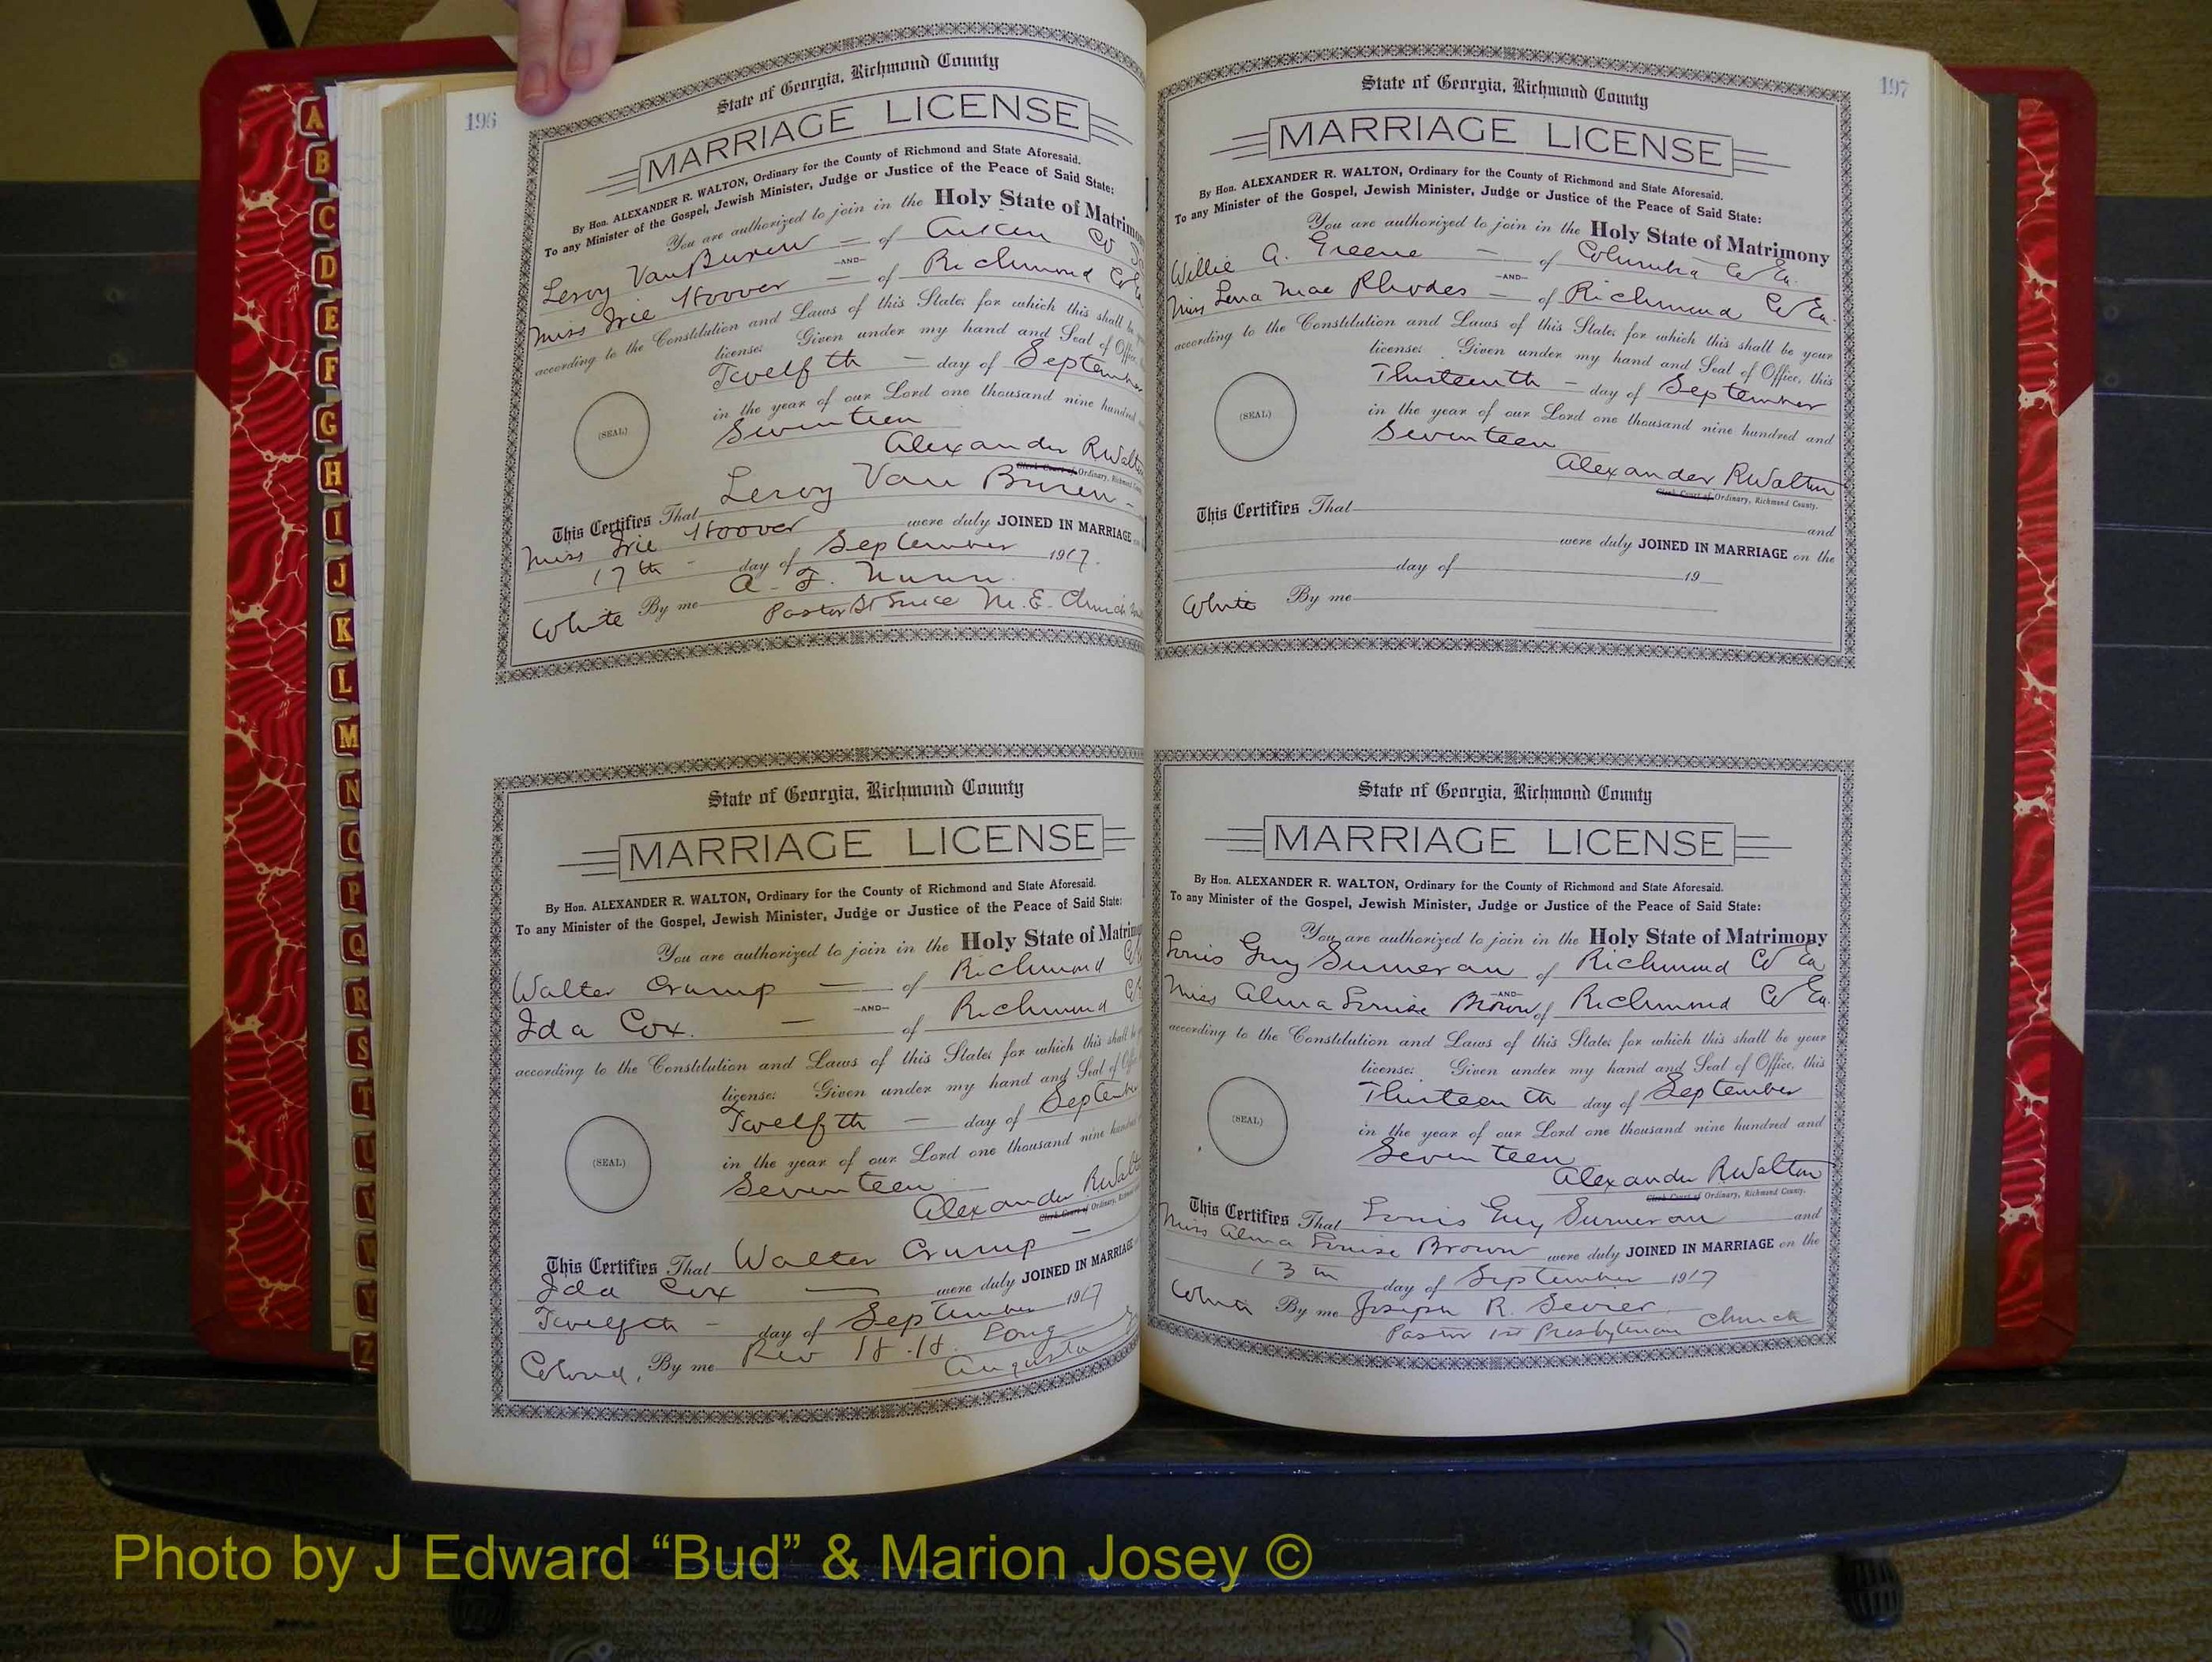 A
B
C
D
E
F
G
H
I
J
K
L
M
N
O
P
Q
R
S
T
U
V
W
Y
Z
196
State of Georgia, Richmond County
MARRIAGE LICENSE
By Hon. ALEXANDER R. WALTON, Ordinary for the County of Richmond and State Aforesaid.
To any Minister of the Gospel, Jewish Minister, Judge or Justice of the Peace of Said State:
You are authorized to join in the Holy State of Matrimony
Leroy Van Buren of Aiken Co
—AND—
Miss Irie Hoover of Richmond Co
according to the Constitution and Laws of this State, for which this shall be
license. Given under my hand and Seal of Office,
Twelfth day of September
in the year of our Lord one thousand nine hundred
Seventeen
(SEAL)
Alexander R Walton
Clerk Court of Ordinary, Richmond County.
This Certifies That Leroy Van Buren
Miss Irie Hoover were duly JOINED IN MARRIAGE
17th day of September 1917.
White By me A. F. Nunn
Pastor St M. E. Church
State of Georgia, Richmond County
MARRIAGE LICENSE
By Hon. ALEXANDER R. WALTON, Ordinary for the County of Richmond and State Aforesaid.
To any Minister of the Gospel, Jewish Minister, Judge or Justice of the Peace of Said State:
You are authorized to join in the Holy State of Matrimony
Walter Crump of Richmond
—AND—
Ida Cox. of Richmond
according to the Constitution and Laws of this State, for which this shall
license. Given under my hand and Seal of
Twelfth day of September
in the year of our Lord one thousand nine hundred
Seventeen
(SEAL)
Alexander R Walton
Clerk Court of Ordinary,
This Certifies That Walter Crump
Ida Cox were duly JOINED IN MARRIAGE
Twelfth day of September 1917
Colored, By me Rev H. H. Long
Augusta
197
State of Georgia, Richmond County
MARRIAGE LICENSE
By Hon. ALEXANDER R. WALTON, Ordinary for the County of Richmond and State Aforesaid.
To any Minister of the Gospel, Jewish Minister, Judge or Justice of the Peace of Said State:
You are authorized to join in the Holy State of Matrimony
Willie A. Greene of Columbia Co Ga.
—AND—
Miss Lena Mae Rhodes of Richmond Co Ga.
according to the Constitution and Laws of this State, for which this shall be your
license. Given under my hand and Seal of Office, this
Thirteenth day of September
in the year of our Lord one thousand nine hundred and
Seventeen
(SEAL)
Alexander R Walton
Clerk Court of Ordinary, Richmond County.
This Certifies That
and
were duly JOINED IN MARRIAGE on the
day of 19
White By me
State of Georgia, Richmond County
MARRIAGE LICENSE
By Hon. ALEXANDER R. WALTON, Ordinary for the County of Richmond and State Aforesaid.
To any Minister of the Gospel, Jewish Minister, Judge or Justice of the Peace of Said State:
You are authorized to join in the Holy State of Matrimony
Louis Guy Sumerau of Richmond Co Ga
—AND—
Miss Alma Louise Brown of Richmond Co Ga.
according to the Constitution and Laws of this State, for which this shall be your
license. Given under my hand and Seal of Office, this
Thirteenth day of September
in the year of our Lord one thousand nine hundred and
Seventeen
(SEAL)
Alexander R Walton
Clerk Court of Ordinary, Richmond County.
This Certifies That Louis Guy Sumerau and
Miss Alma Louise Brown were duly JOINED IN MARRIAGE on the
13th day of September 1917
White By me Joseph R. Sevier.
Pastor 1st Presbyterian Church
Photo by J Edward “Bud” & Marion Josey ©